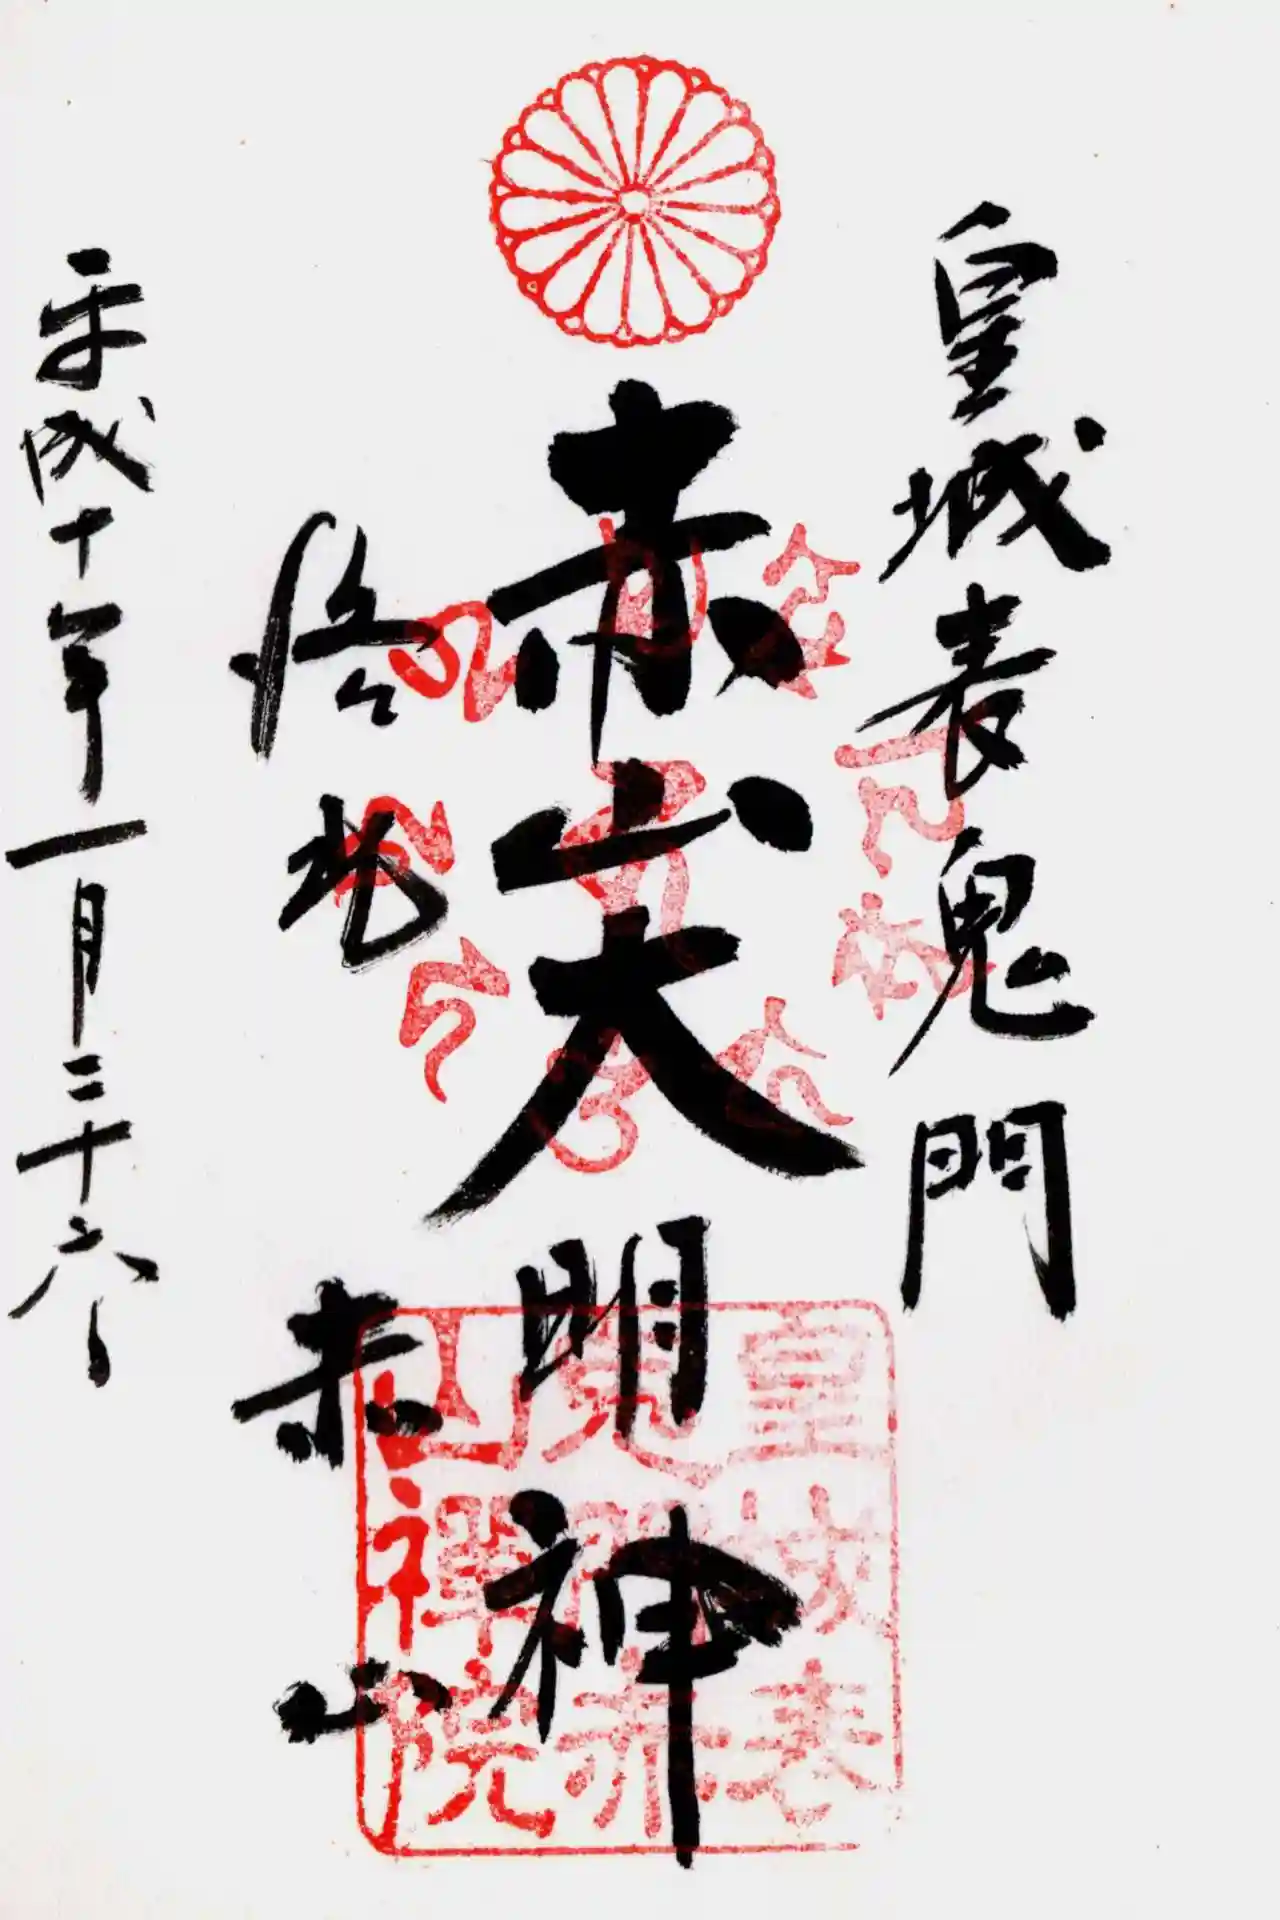 皇城表鬼門
赤山大明神
洛北 赤山
平成十年一月二十六日
皇城表
鬼門赤
山禪院